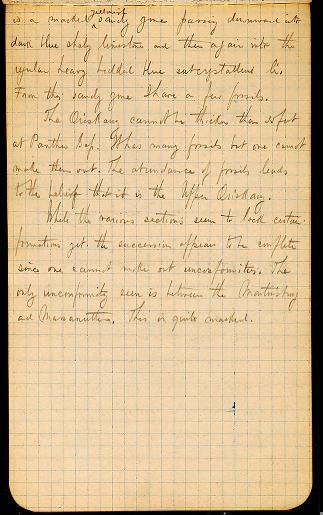 is a marked yellowish sandy zone passing downward into
dark blue shaly limestone and then again into the
regular heavy bedded blue subcrystalline ls.
From this sandy zone I have a few fossils.
The Oriskany cannot be thicker than 50 feet
at Panther Gap. It has many fossils but one cannot
make them out. The abundance of fossils leads
to the belief that it is the Upper Oriskany.
While the various sections seem to lack certain
formations yet the succession appears to be complete
since one cannot make out unconformities. The
only unconformity seen is between the
and Manasnuttten. This is quite marked.